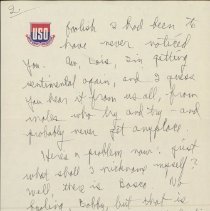 2.
USO
foolish I had been to
have never noticed
you. Aw, Lois, I'm getting
sentimental again, and I guess
you hear it from us all, from
males who try and try - and
probably never get anyplace.
Here's a problem now: just
what shall I nickname myself?
Well, there is Bosco. No
kidding, Bobby, but that is